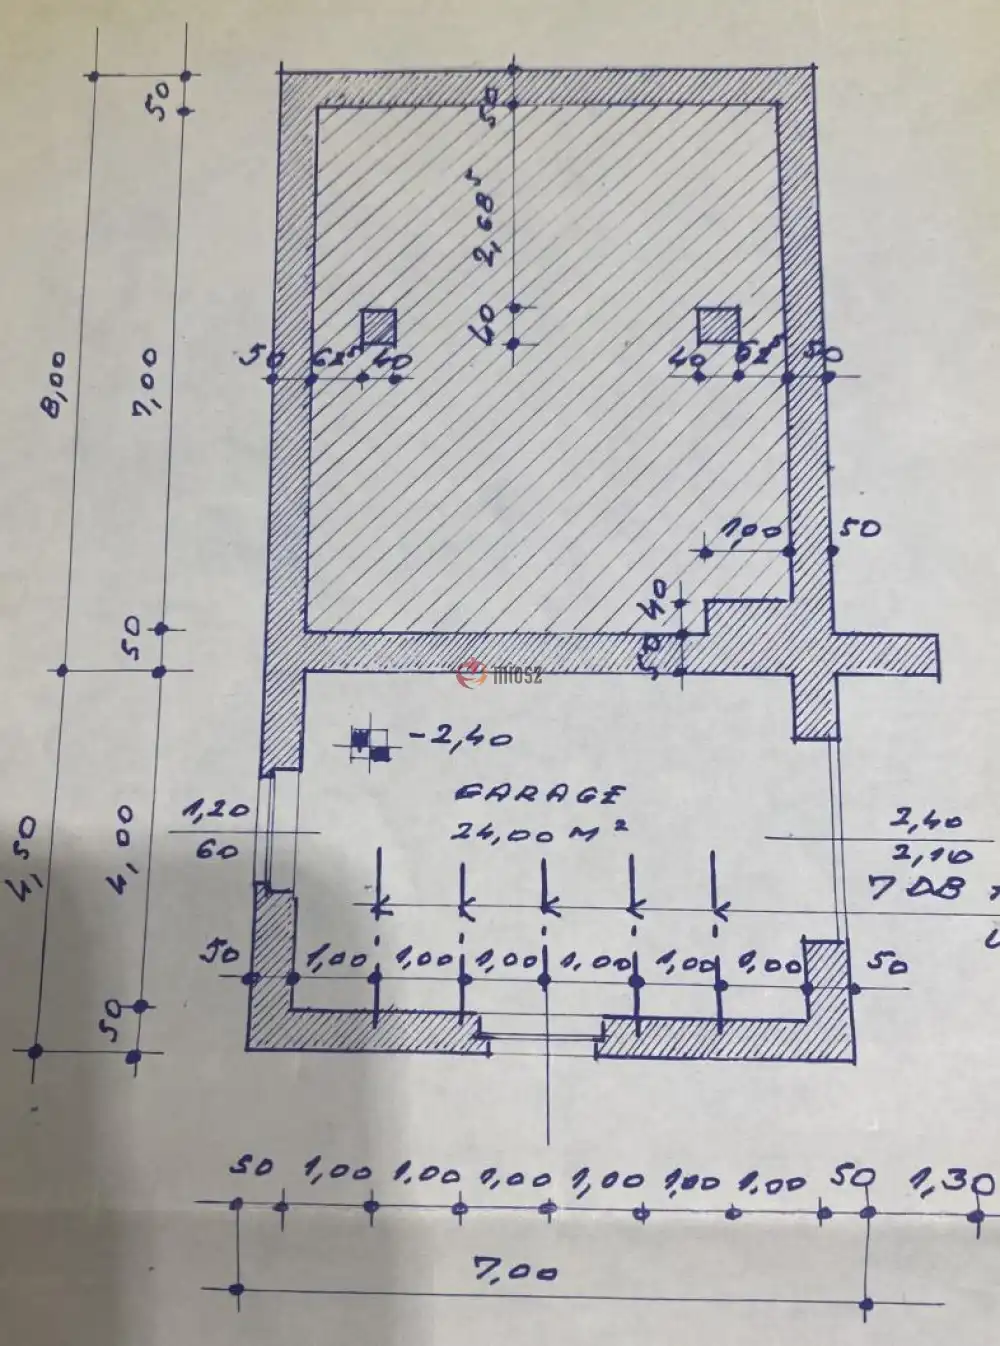 50
50
2,68⁵
40
50 62⁵ 40
40 62⁵ 50
8,00
7,00
1,00 50
40
50
50
miosz
-2,40
GARAGE
24,00 M²
1,20
60
2,40
2,10
7 DB
4,50
4,00
50 1,00 1,00 1,00 1,00 1,00 1,00 50
50
50 1,00 1,00 1,00 1,00 1,00 1,00 50 1,30
7,00